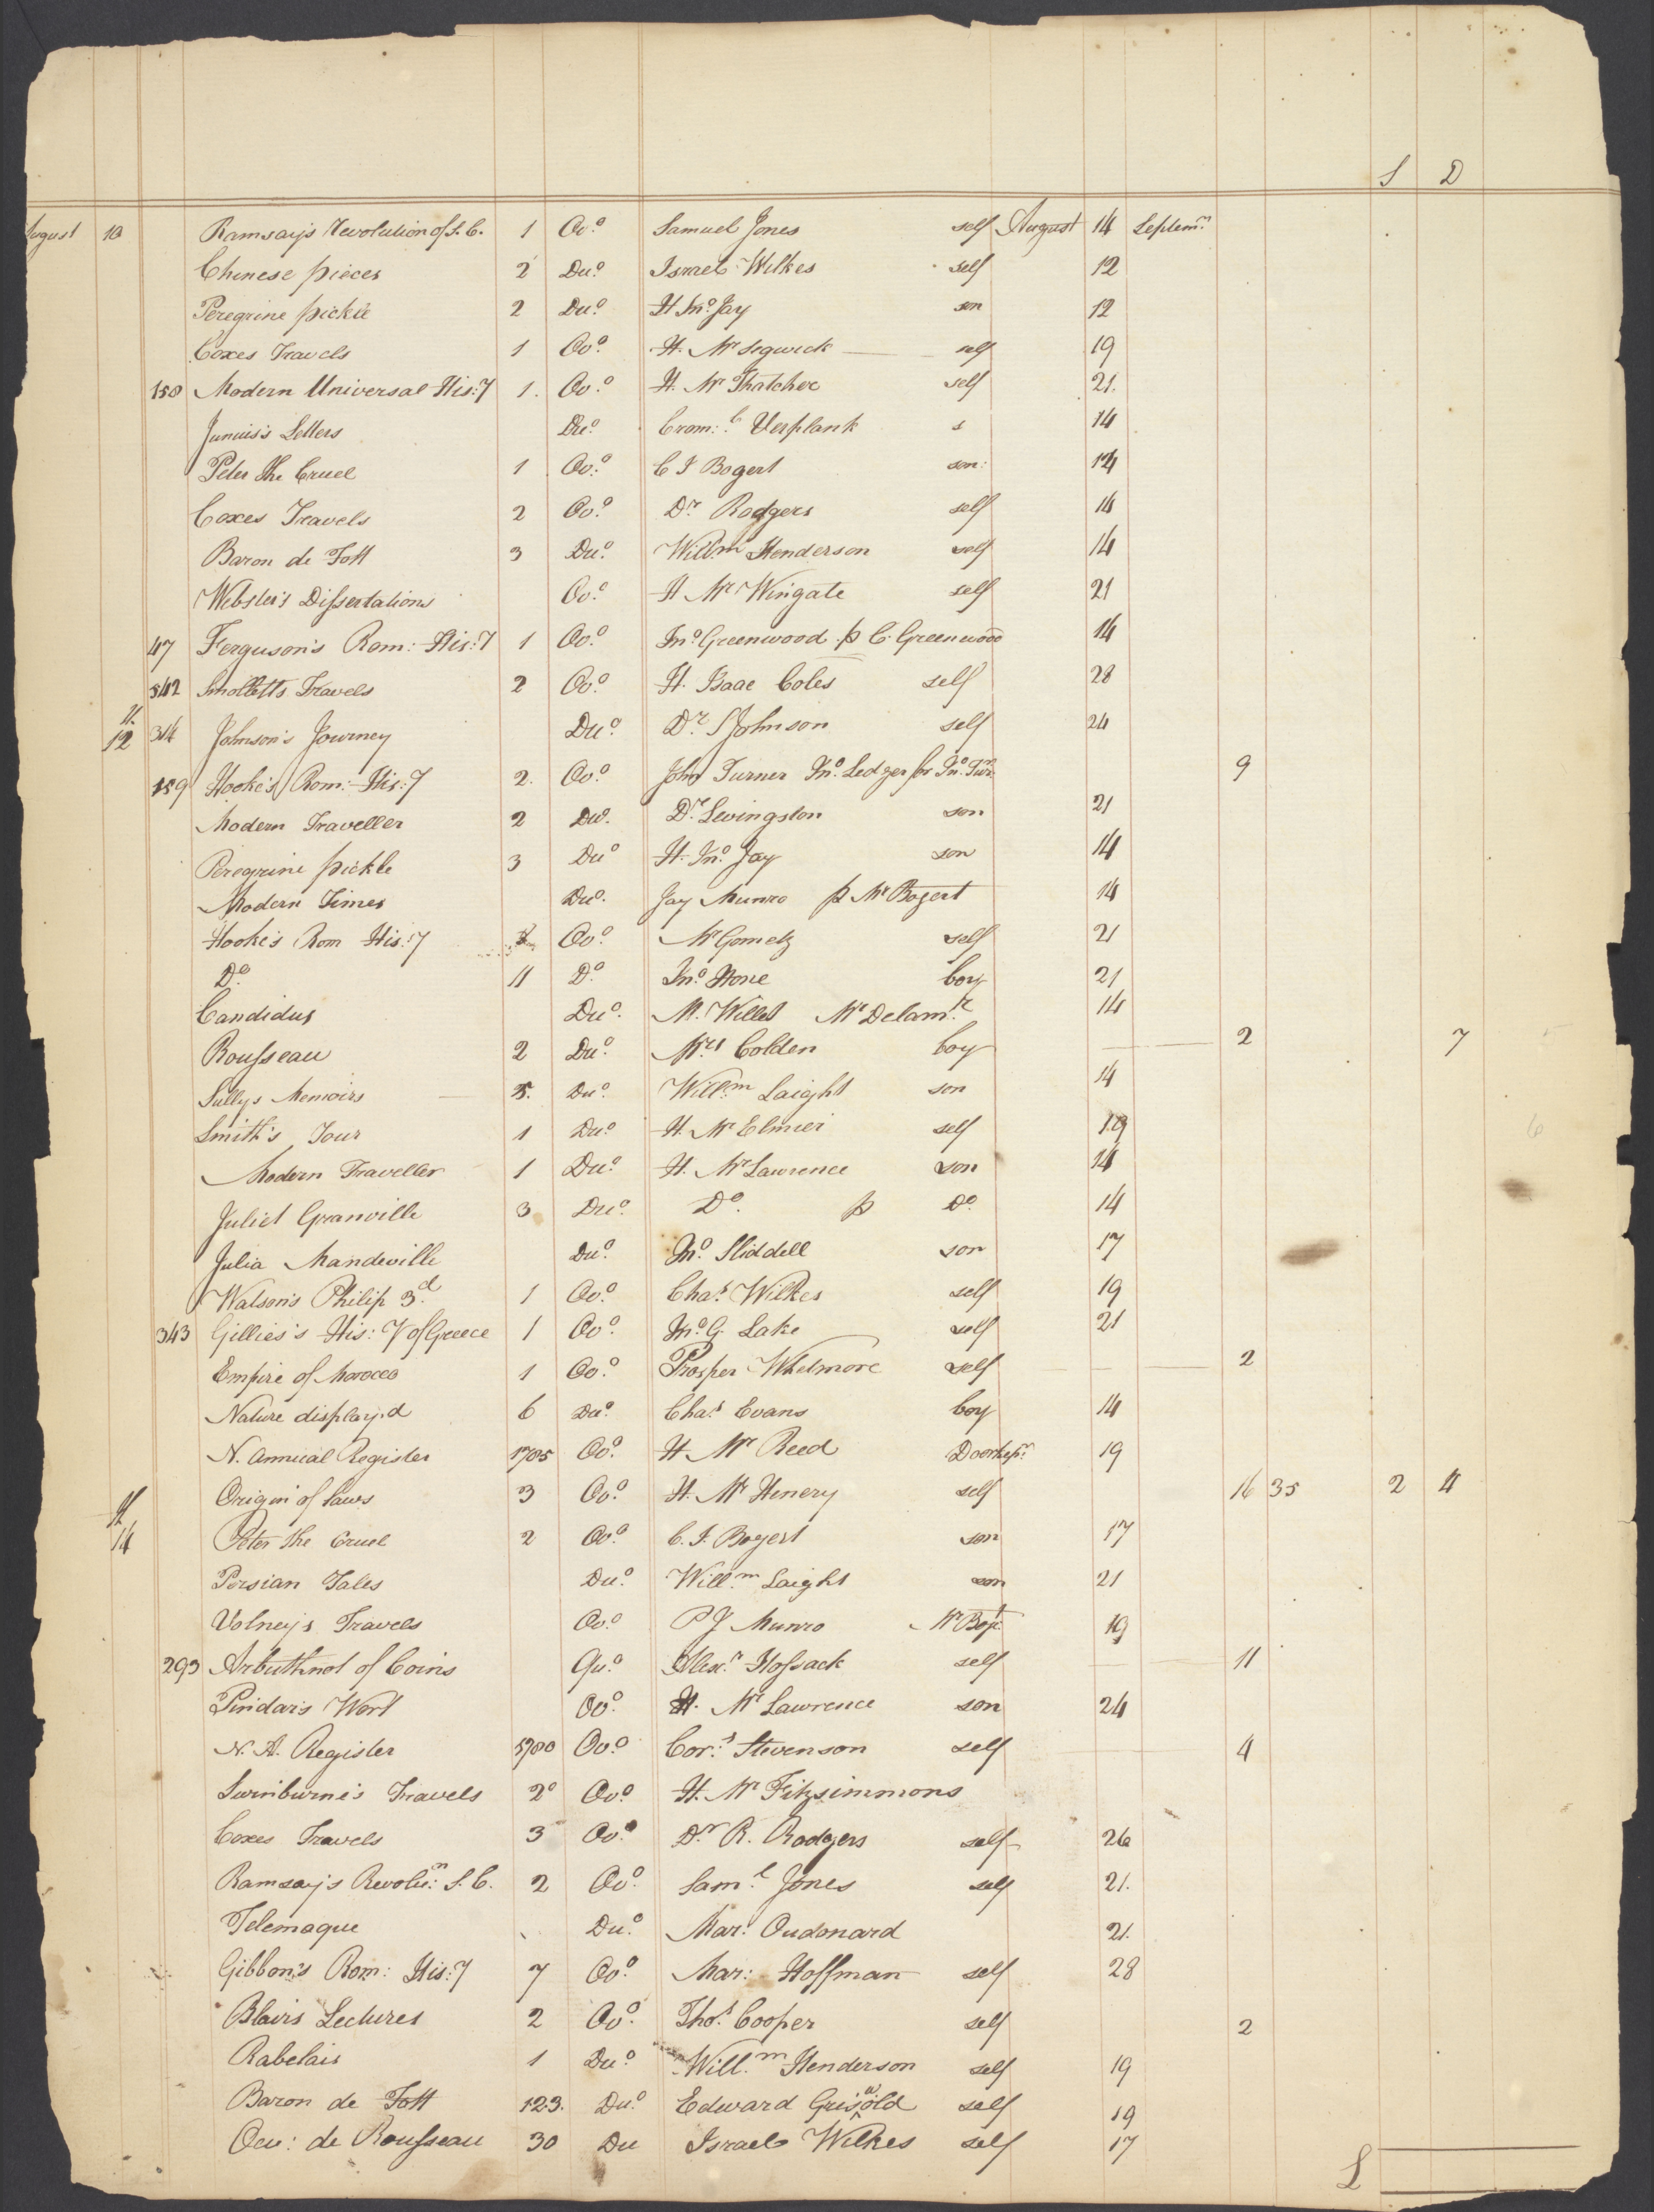 S D
August 10 Ramsay's Revolution of S. C. 1 Oo.o Samuel Jones self August 14 Septemr
Chinese pieces 2 Duo Israel Wilkes self 12
Peregrine pickle 2 Duo H Jno Jay son 12
Coxes Travels 1 Oo.o H. Mr Segwick self 19
158 Modern Universal His:y 1. Oo.o H. Mr Thatcher self 21.
Junius's Letters Duo Crom:l Verplank s 14
Peter the Cruel 1 Oo.o C I Bogert son: 14
Coxes Travels 2 Oo.o Dr Rodgers self 14
Baron de Tott 3 Duo Willm Henderson self 14
Webster's Dissertations Oo.o H Mr Wingate self 21
47 Ferguson's Rom: His:y 1 Oo.o Jno Greenwood p C. Greenwood 14
342 Smolletts Travels 2 Oo.o H. Isaac Coles self 28
12 314 Johnson's Journey Duo Dr S Johnson self 24
159 Hooke's Rom: His:y 2. Oo.o John Turner Jno Ledger for Jno Turr 9
Modern Traveller 2 Duo Dr Levingston son 21
Peregrine pickle 3 Duo H. Jno Jay son 14
Modern Times Duo Jay Munro p Mr Bogert 14
Hooke's Rom His:y Oo.o Mr Gometz self 21
Do 11 Do Jno Hone boy 21
Candidus Duo M. Willet Mr Delamr 14
Rousseau 2 Duo Mrs Colden boy 2 7
Sullys Memoirs 5. Duo Willm Laight son 14
Smith's Tour 1 Duo H. Mr Elmier self 19
Modern Traveller 1 Duo H. Mr Lawrence son 14
Juliet Granville 3 Duo Do p Do 14
Julia Mandeville Duo Jno Sliddell son 17
Watson's Philip 3d 1 Oo.o Chas Wilkes self 19
343 Gillies's His:y of Greece 1 Oo.o Jno G. Lake self 21
Empire of Morocco 1 Oo.o Prosper Whetmore self 2
Nature display.d 6 Duo Chas Evans boy 14
N. Annual Register 1785 Oo.o H Mr Reed Doorkepr 19
Origin of Laws 3 Oo.o H. Mr Henery self 16 35 2 4
14 Peter the Cruel 2 Oo.o C. I. Bogert son 17
Persian Tales Duo Willm Laight son 21
Volney's Travels Oo.o P J Munro Mr Bogt 19
293 Arbuthnot of Coins Quo Alexr Hossack self 11
Pindar's Wort Oo.o H. Mr Lawrence son 24
N. A. Register 1780 Oo.o Cors Stevenson self 4
Swinburne's Travels 2o Oo.o H. Mr Fitzsimmons
Coxes Travels 3 Oo.o Dr R. Rodgers self 26
Ramsay's Revolun S. C. 2 Oo.o Saml Jones self 21.
Telemaque Duo Mar: Oudonard 21.
Gibbon's Rom: His:y 7 Oo.o Mar: Hoffman self 28
Blairs Lectures 2 Oo.o Thos Cooper self 2
Rabelais 1 Duo Willm Henderson self 19
Baron de Tott 1.2.3. Duo Edward Griswold self 19
Oeu: de Rousseau 30 Du Israel Wilkes self 17
£